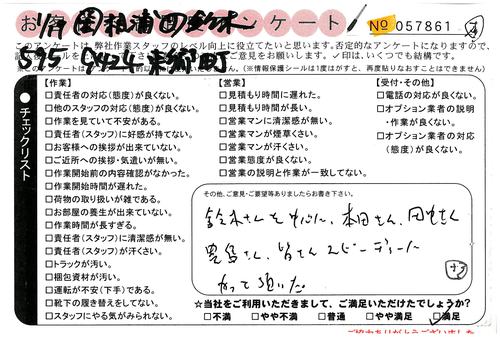 お ケート No 057861
このアンケートは、弊社作業スタッフのレベル向上に役立てたいと思います。否定的なアンケートになりますので、
ご意見をお願いします。✓印は、いくつでも結構です。
(※情報保護シールは1度はがすと、再度貼りなおすことはできません)
チェックリスト
【作業】
□責任者の対応(態度)が良くない。
□他のスタッフの対応(態度)が良くない。
□作業を見ていて不安がある。
□責任者(スタッフ)に好感が持てない。
□お客様への挨拶が出来ていない。
□ご近所への挨拶・気遣いが無い。
□作業開始前の内容確認がなかった。
□作業開始時間が遅れた。
□荷物の取り扱いが雑である。
□お部屋の養生が出来ていない。
□作業時間が長すぎる。
□責任者(スタッフ)に清潔感が無い。
□責任者(スタッフ)が汗くさい。
□トラックが汚い。
□梱包資材が汚い。
□運転が不安(下手)である。
□靴下の履き替えをしてない。
□スタッフにやる気がみられない。
【営業】
□見積もり時間に遅れた。
□見積もり時間が長い。
□営業マンに清潔感が無い。
□営業マンが煙草くさい。
□営業マンが汗くさい。
□営業態度が良くない。
□営業の説明と作業が一致してない。
【受付・その他】
□電話の対応が良くない。
□オプション業者の説明
・作業が良くない。
□オプション業者の対応
(態度)が良くない。
その他、ご意見・ご要望等ありましたらお書き下さい。
鈴木さんを中心に、本田さん、田中さん
豊島さん、皆さんスピーディーに
やって頂いた
☆当社をご利用いただきまして、ご満足いただけたでしょうか?
□不満 □やや不満 □普通 □やや満足 ☑満足
ご協力ありがとうございました